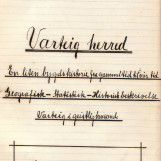 Varteig herred
En liten bygdehistorie fra gammel tid til nutid
Geografisk - Statistisk - Historisk beskrivelse
Varteig i